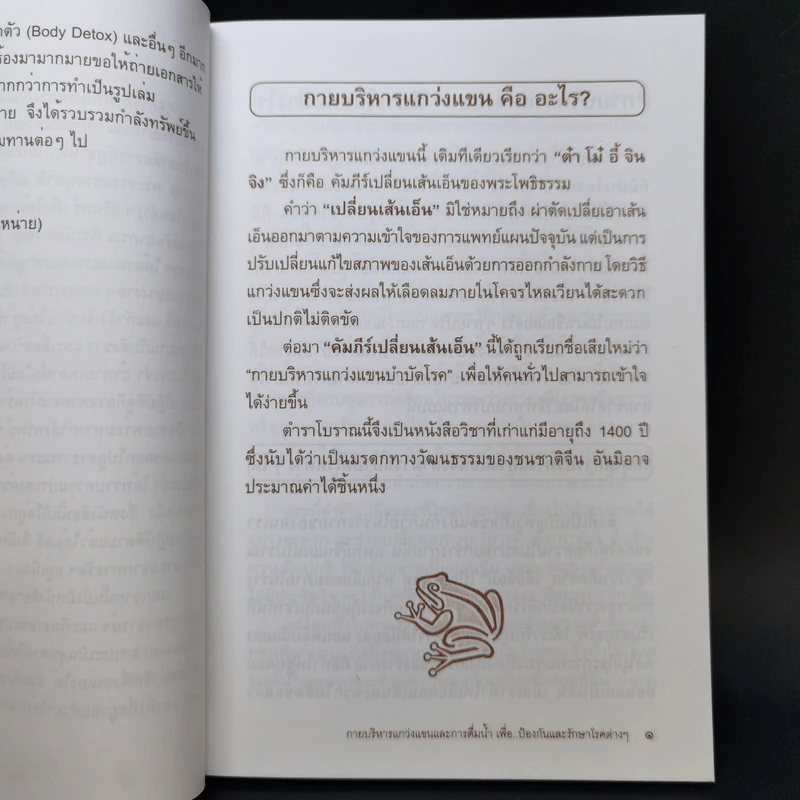 ตัว (Body Detox) และอื่นๆ อีกมาก
ร้องมามากมายขอให้ถ่ายเอกสารให้
ากกว่าการทำเป็นรูปเล่ม
าย จึงได้รวบรวมกำลังทรัพย์ขึ้น
มทานต่อๆ ไป
หน่าย)
กายบริหารแกว่งแขน คือ อะไร?
กายบริหารแกว่งแขนนี้ เดิมทีเดียวเรียกว่า “ต๋า โม๋ อี้ จิน
จิง” ซึ่งก็คือ คัมภีร์เปลี่ยนเส้นเอ็นของพระโพธิธรรม
คำว่า “เปลี่ยนเส้นเอ็น” มิใช่หมายถึง ผ่าตัดเปลี่ยเอาเส้น
เอ็นออกมาตามความเข้าใจของการแพทย์แผนปัจจุบัน แต่เป็นการ
ปรับเปลี่ยนแก้ไขสภาพของเส้นเอ็นด้วยการออกกำลังกาย โดยวิธี
แกว่งแขนซึ่งจะส่งผลให้เลือดลมภายในโคจรไหลเวียนได้สะดวก
เป็นปกติไม่ติดขัด
ต่อมา “คัมภีร์เปลี่ยนเส้นเอ็น” นี้ได้ถูกเรียกชื่อเสียใหม่ว่า
“กายบริหารแกว่งแขนบำบัดโรค” เพื่อให้คนทั่วไปสามารถเข้าใจ
ได้ง่ายขึ้น
ตำราโบราณนี้จึงเป็นหนังสือวิชาที่เก่าแก่มีอายุถึง 1400 ปี
ซึ่งนับได้ว่าเป็นมรดกทางวัฒนธรรมของชนชาติจีน อันมิอาจ
ประมาณค่าได้ชิ้นหนึ่ง
กายบริหารแกว่งแขนและการดื่มน้ำ เพื่อ. ป้องกันและรักษาโรคต่างๆ ๑